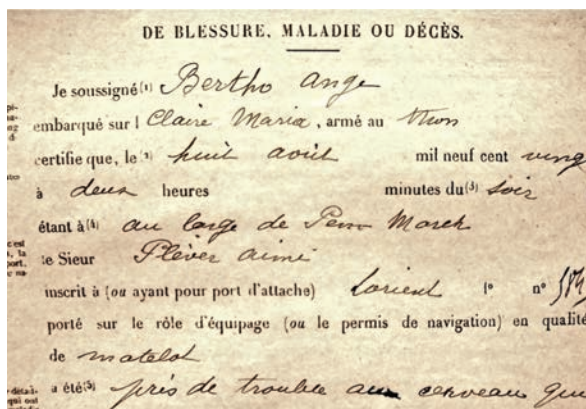 DE BLESSURE, MALADIE OU DÉCÈS.
Je soussigné (1) Bertho Ange
embarqué sur l Claire Maria, armé au thon
certifie que, le (2) huit août mil neuf cent ving
à deux heures minutes du (3) soir
étant à (4) au large de Penn March
le Sieur Pléver aimé
inscrit à (ou ayant pour port d'attache) Lorient fo no 584
porté sur le rôle d'équipage (ou le permis de navigation) en qualité
de matelot
a été (5) pris de trouble au cerveau qui